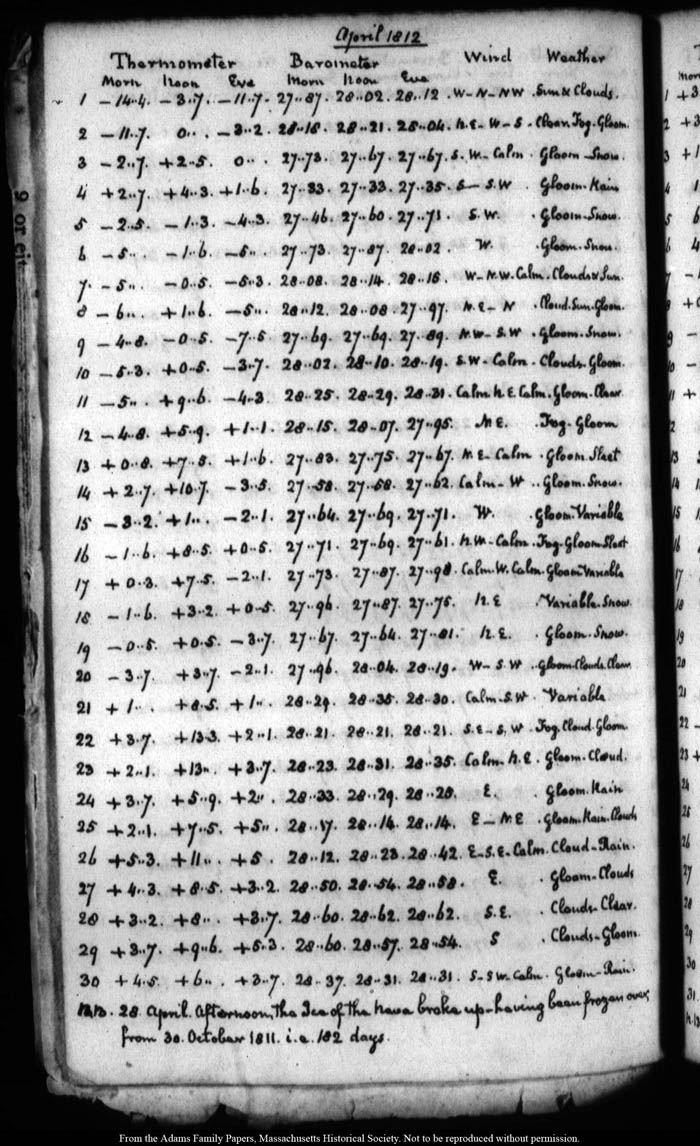 April 1812
Thermometer Barometer Wind Weather
Morn Noon Eve Morn Noon Eve
1 -14..4. -3..7. -11..7. 27..87. 28..02. 28..12. W-N-NW. Sun & Clouds.
2 -11..7. 0.. -3..2. 28..18. 28..21. 28..04. N.E-W-S. Clear. Fog. Gloom.
3 -2..7. +2..5. 0.. 27..73. 27..67. 27..67. S.W-Calm. Gloom-Snow.
4 +2..7. +4..3. +1..6. 27..33. 27..33. 27..35. S-S.W. Gloom-Rain
5 -2..5. -1..3. -4..3. 27..46. 27..60. 27..71. S.W. Gloom-Snow.
6 -5.. -1..6. -5.. 27..73. 27..87. 28..02. W. Gloom-Snow.
7. -5.. -0..5. -5..3. 28..08. 28..14. 28..15. W-N.W. Calm. Clouds & Sun.
8 -6.. +1..6. -5.. 28..12. 28..08. 27..97. N.E-N. Cloud. Sun. Gloom.
9 -4..8. -0..5. -7..5 27..69. 27..69. 27..89. N.W-S.W. Gloom-Snow.
10 -5..3. +0..5. -3..7. 28..02. 28..10. 28..19. S.W-Calm. Clouds. Gloom.
11 -5.. +9..6. -4..3 28..25. 28..29. 28..31. Calm. N.E. Calm. Gloom-Clear.
12 -4..8. +5..9. +1..1. 28..15. 28..07. 27..95. N.E. Fog-Gloom
13 +0..8. +7..5. +1..6. 27..83. 27..75. 27..67. N.E-Calm. Gloom-Sleet
14 +2..7. +10..7. -3..5. 27..58. 27..58. 27..62. Calm-W. Gloom-Snow.
15 -3..2. +1.. -2..1. 27..64. 27..69. 27..71. W. Gloom-Variable
16 -1..6. +8..5. +0..5. 27..71. 27..69. 27..61. N.W-Calm. Fog-Gloom. Sleet
17 +0..3. +7..5. -2..1. 27..73. 27..87. 27..98. Calm. W. Calm. Gloom Variable
18 -1..6. +3..2. +0..5. 27..96. 27..87. 27..75. N.E Variable. Snow.
19 -0..5. +0..5. -3..7. 27..67. 27..64. 27..81. N.E. Gloom-Snow.
20 -3..7. +3..7. -2..1. 27..96. 28..04. 28..19. W-S.W. Gloom. Clouds. Clear
21 +1.. +8..5. +1.. 28..29. 28..35. 28..30. Calm-S.W. Variable
22 +3..7. +13..3. +2..1. 28..21. 28..21. 28..21. S.E-S.W. Fog. Cloud. Gloom
23 +2..1. +13.. +3..7. 28..23. 28..31. 28..35. Calm. N.E. Gloom-Cloud.
24 +3..7. +5..9. +2.. 28..33. 28..29. 28..20. E. Gloom. Rain
25 +2..1. +7..5. +5.. 28..17. 28..14. 28..14. E-N.E. Gloom. Rain. Clouds
26 +5..3. +11.. +5. 28..12. 28..23. 28..42. E-S.E-Calm. Cloud-Rain.
27 +4..3. +8..5. +3..2. 28..50. 28..54. 28..58. E. Gloom-Clouds
28 +3..2. +8.. +3..7. 28..60. 28..62. 28..62. S.E. Clouds-Clear.
29 +3..7. +9..6. +5..3. 28..60. 28..57. 28..54. S Clouds-Gloom.
30 +4..5. +6.. +3..7. 28..37. 28..31. 28..31. S-SW. Calm. Gloom-Rain.
N.B. 28. April. Afternoon, the Ice of the Neva broke up-having been frozen over,
from 30. October 1811. i.e. 182 days.
From the Adams Family Papers, Massachusetts Historical Society. Not to be reproduced without permission.